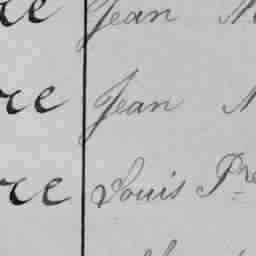 re Jean
re Jean
re Louis Pre